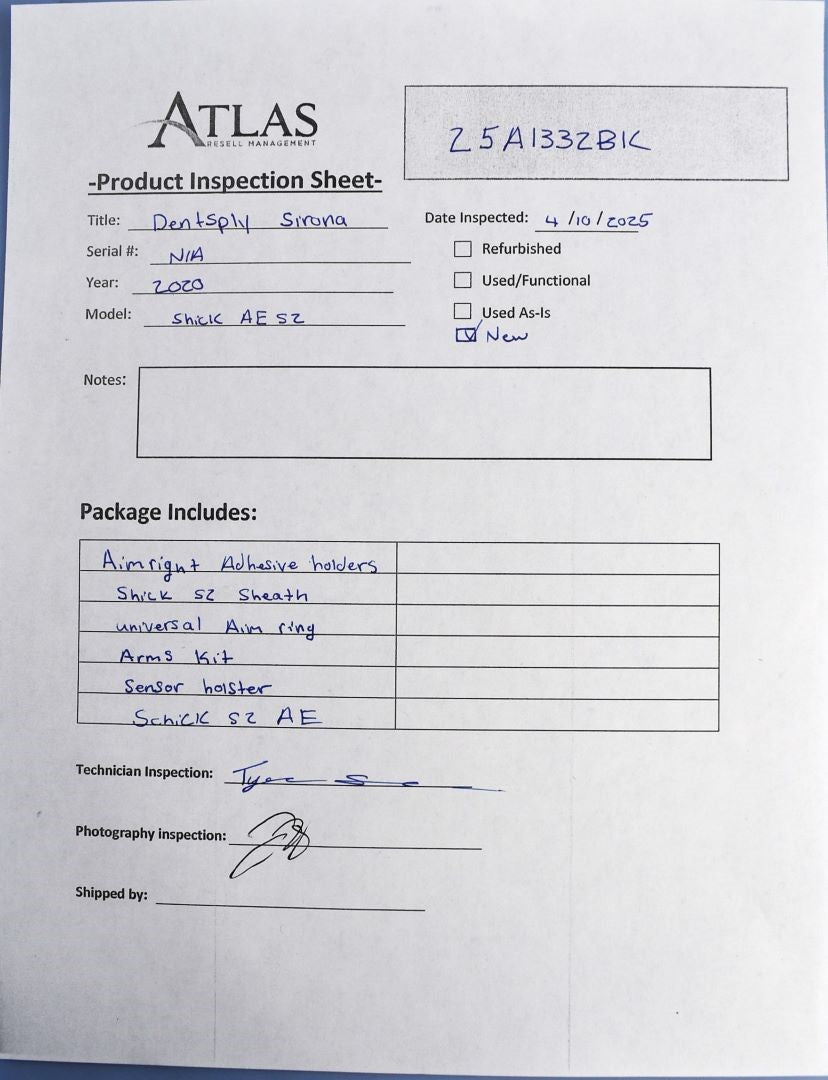 ATLAS
RESELL MANAGEMENT
25A1332BK
-Product Inspection Sheet-
Title: Dentsply Sirona
Date Inspected: 4/10/2025
Serial #: N/A
Refurbished
Year: 2020
Used/Functional
Model: Shick AE S2
Used As-Is
New
Notes:
Package Includes:
Aimright Adhesive holders
Shick S2 Sheath
universal Aim ring
Arms Kit
Sensor holster
Schick S2 AE
Technician Inspection:
Photography inspection:
Shipped by: